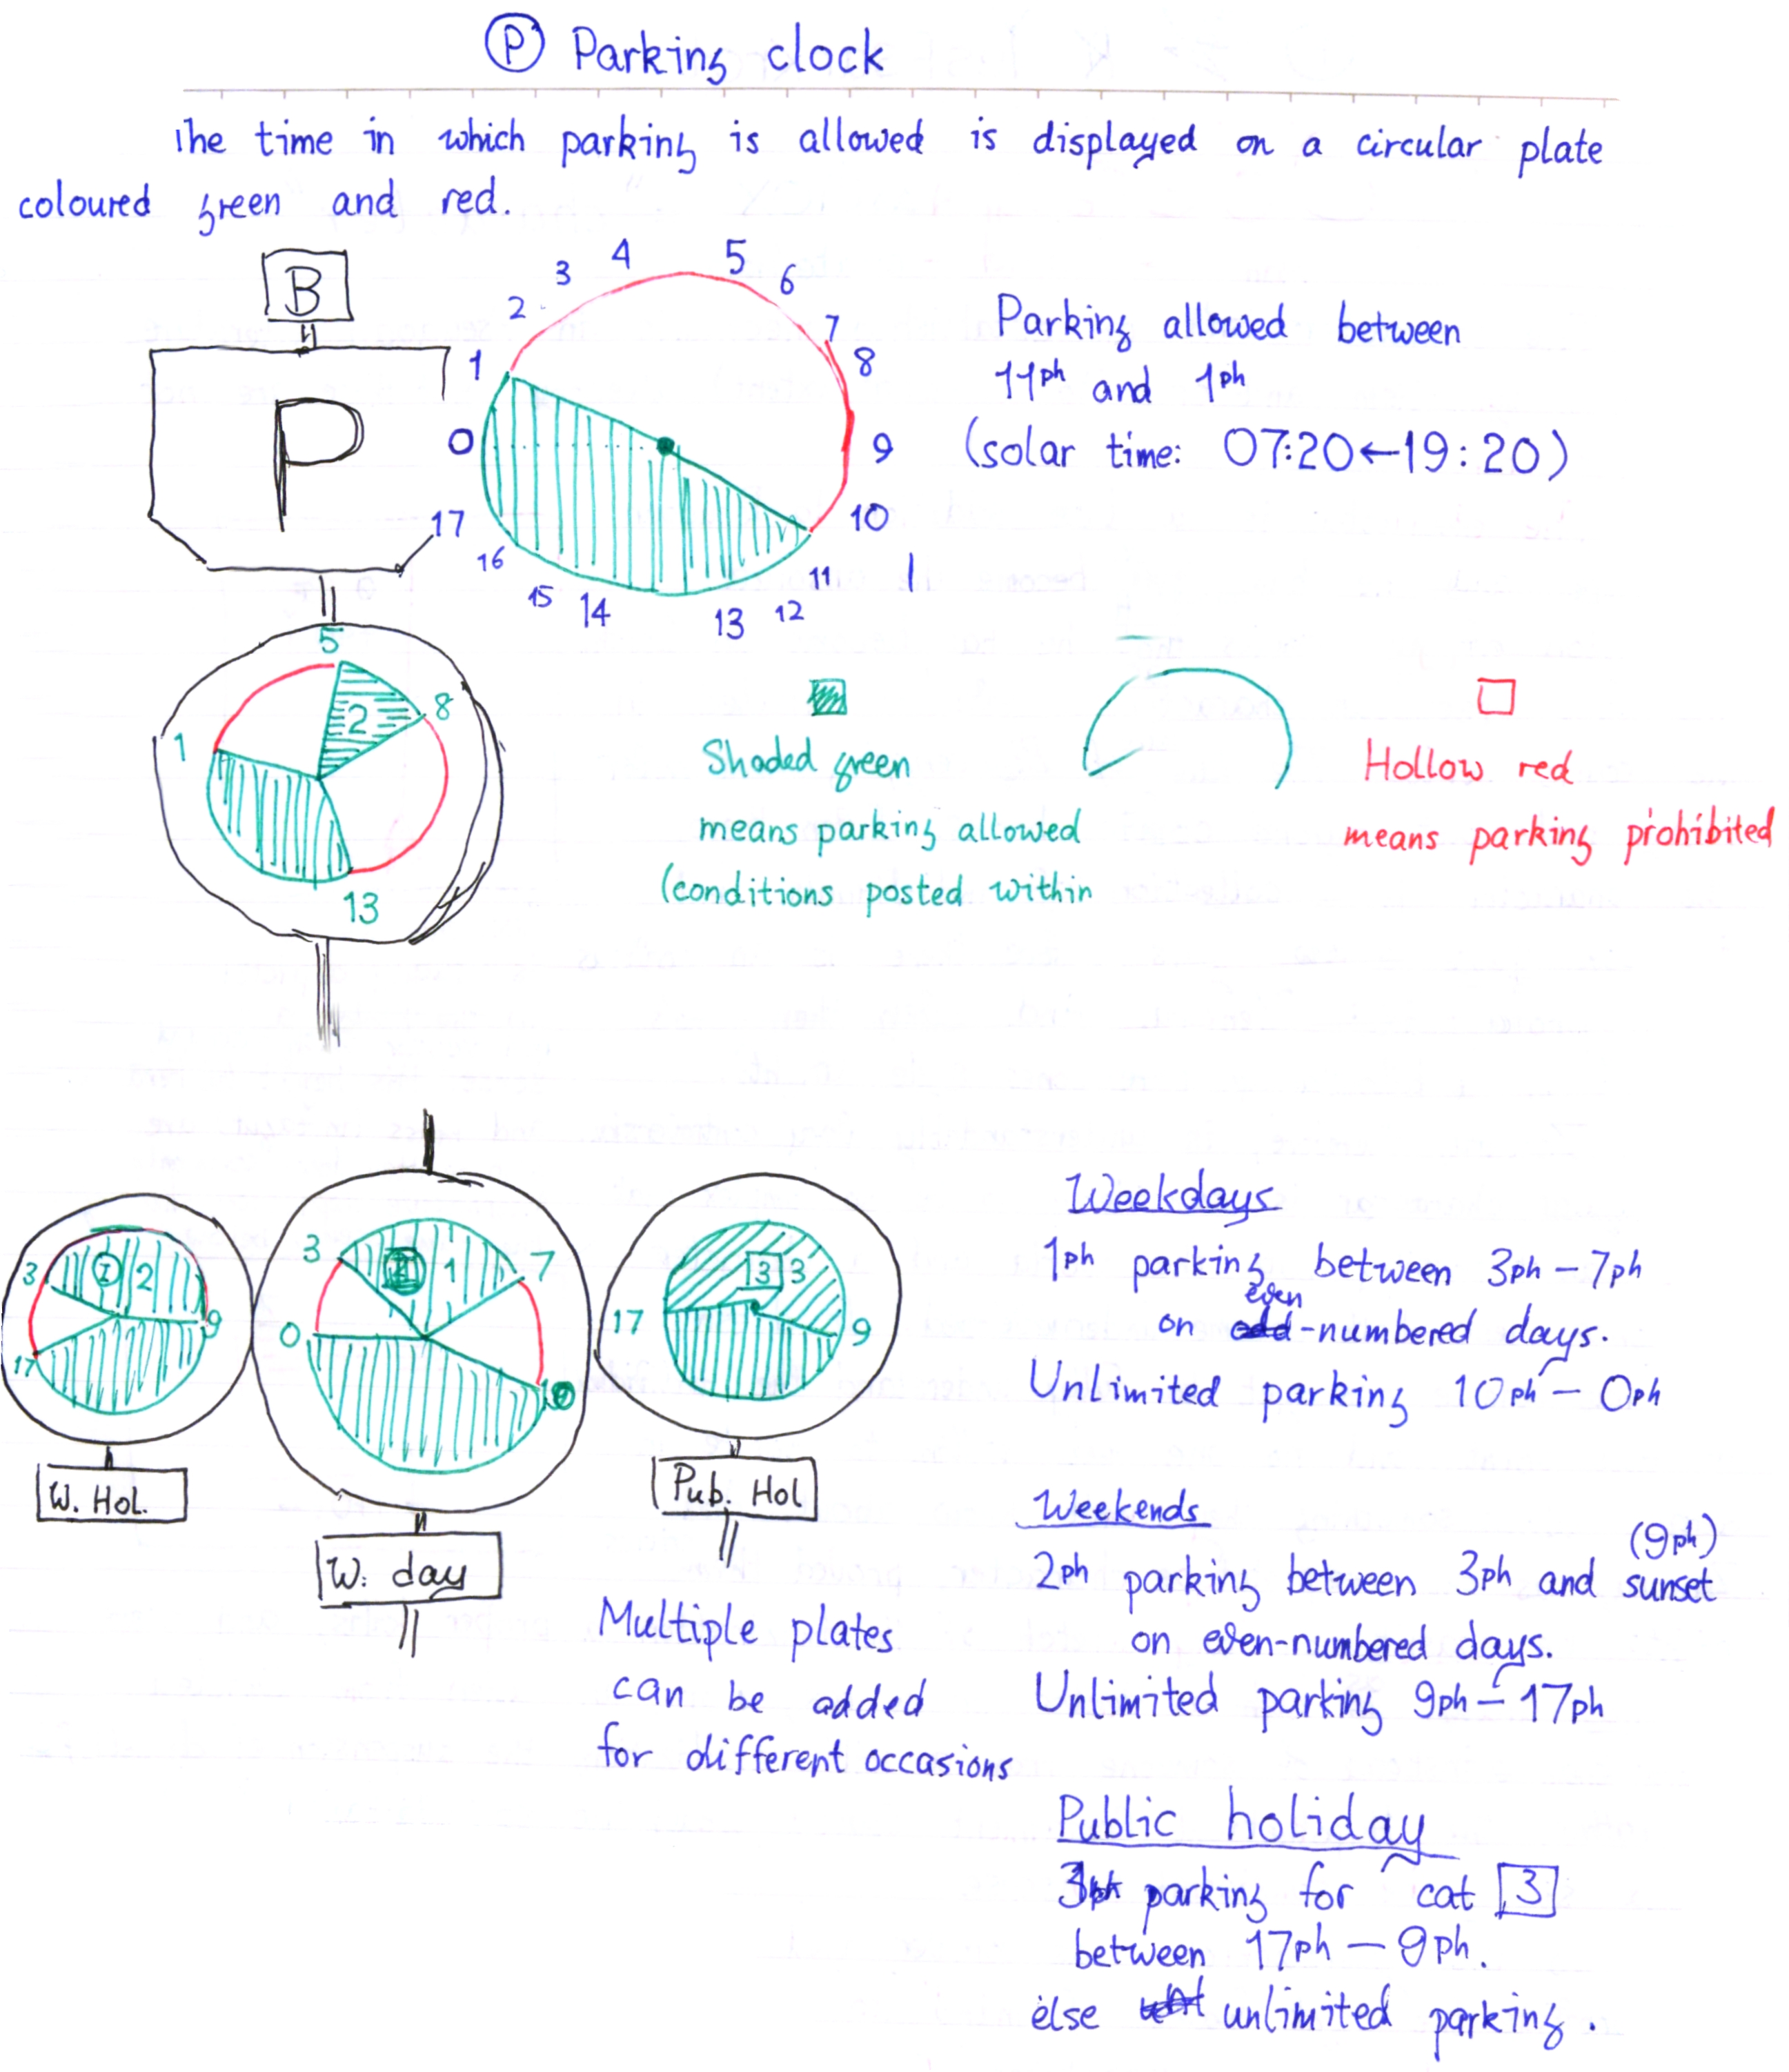 P Parking clock
The time in which parking is allowed is displayed on a circular plate
coloured green and red.
B
P
0
1
2
3
4
5
6
7
8
9
10
11
12
13
14
15
16
17
Parking allowed between
11ph and 1ph
(solar time: 07:20←19:20)
5
2
8
1
13
Shaded green
means parking allowed
(conditions posted within
Hollow red
means parking prohibited
3
2
9
17
W. Hol.
3
1
7
0
10
W. day
3 3
17
9
Pub. Hol
Multiple plates
can be added
for different occasions
Weekdays
1ph parking between 3ph – 7ph
on even-numbered days.
Unlimited parking 10ph – 0ph
Weekends
2ph parking between 3ph and sunset (9ph)
on even-numbered days.
Unlimited parking 9ph – 17ph
Public holiday
3ph parking for cat 3
between 17ph – 9ph.
else unlimited parking.